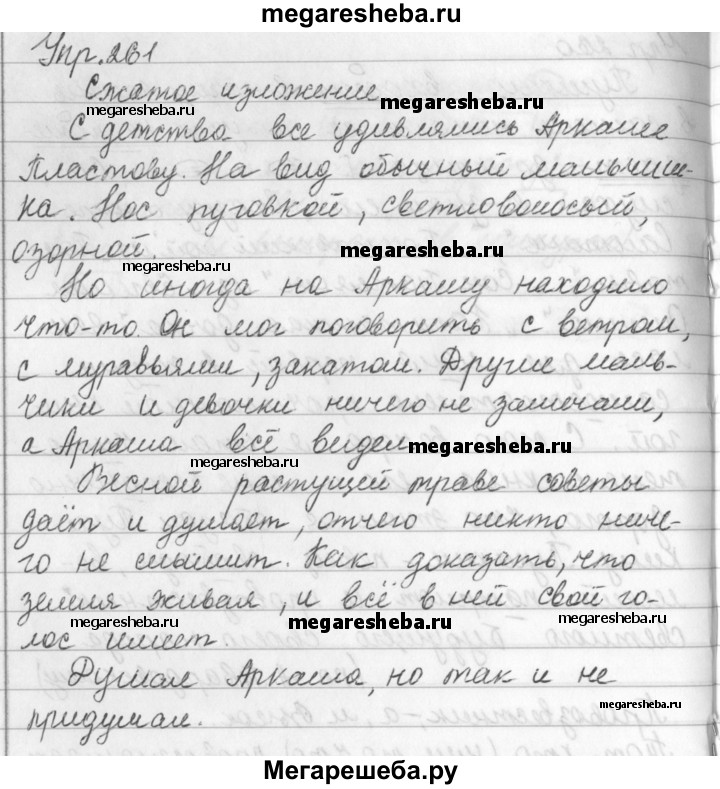 megaresheba.ru
Упр. 261
Сжатое изложение
megaresheba.ru megaresheba.ru
С детства все удивлялись Аркаше
Пластову. На вид обычный мальчиш-
ка. Нос пуговкой, светловолосый,
озорной.
megaresheba.ru megaresheba.ru
Но иногда на Аркашу находило
что-то. Он мог поговорить с ветром,
с муравьями, закатом. Другие маль-
чики и девочки ничего не замечали,
а Аркаша всё видел
megaresheba.ru megaresheba.ru
Весной растущей траве советы
даёт и думает, отчего никто ниче-
го не слышит. Как доказать, что
земля живая, и всё в ней свой го-
лос имеет.
megaresheba.ru megaresheba.ru megaresheba.ru
Думал Аркаша, но так и не
придумал.
megaresheba.ru
Мегарешеба.ру